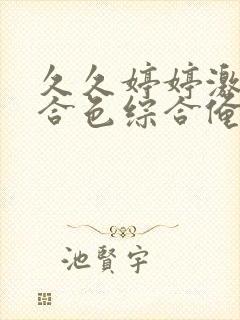 久久婷婷激
合色综合俺
池賢宇